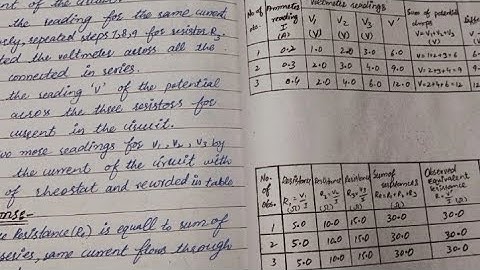 the reading for the same current
repeated steps 7,8,9 for resistor R3.
the voltmeter across all the
connected in series.
the reading 'V' of the potential
across the three resistors for
current in the circuit.
more readings for V1, V2, V3 by
the current of the circuit with
of rheostat and recorded in table
Resistance (Rs) is equal to sum of
series, same current flows through
No of obs. Ammeter reading I (A) Voltmeter readings Sum of potential drops
V1 (V) V2 (V) V3 (V) V' (V) V=V1+V2+V3 (V)
1 0.2 1.0 2.0 3.0 6.0 V=1+2+3=6
2 0.3 2.0 3.0 4.0 9.0 V=2+3+4=9 9
3 0.4 2.0 4.0 6.0 12.0 V=2+4+6=12 12
No. of Obs. Resistance R1=V1/I (Ω) Resistance R2=V2/I (Ω) Resistance R3=V3/I (Ω) Sum of resistances Rs=R1+R2+R3 (Ω) Observed equivalent resistance (Ω)
1 5.0 10.0 15.0 30.0 30.0
2 5.0 10.0 15.0 30.0 30.0
3 5.0 10.0 15.0 30.0 30.0